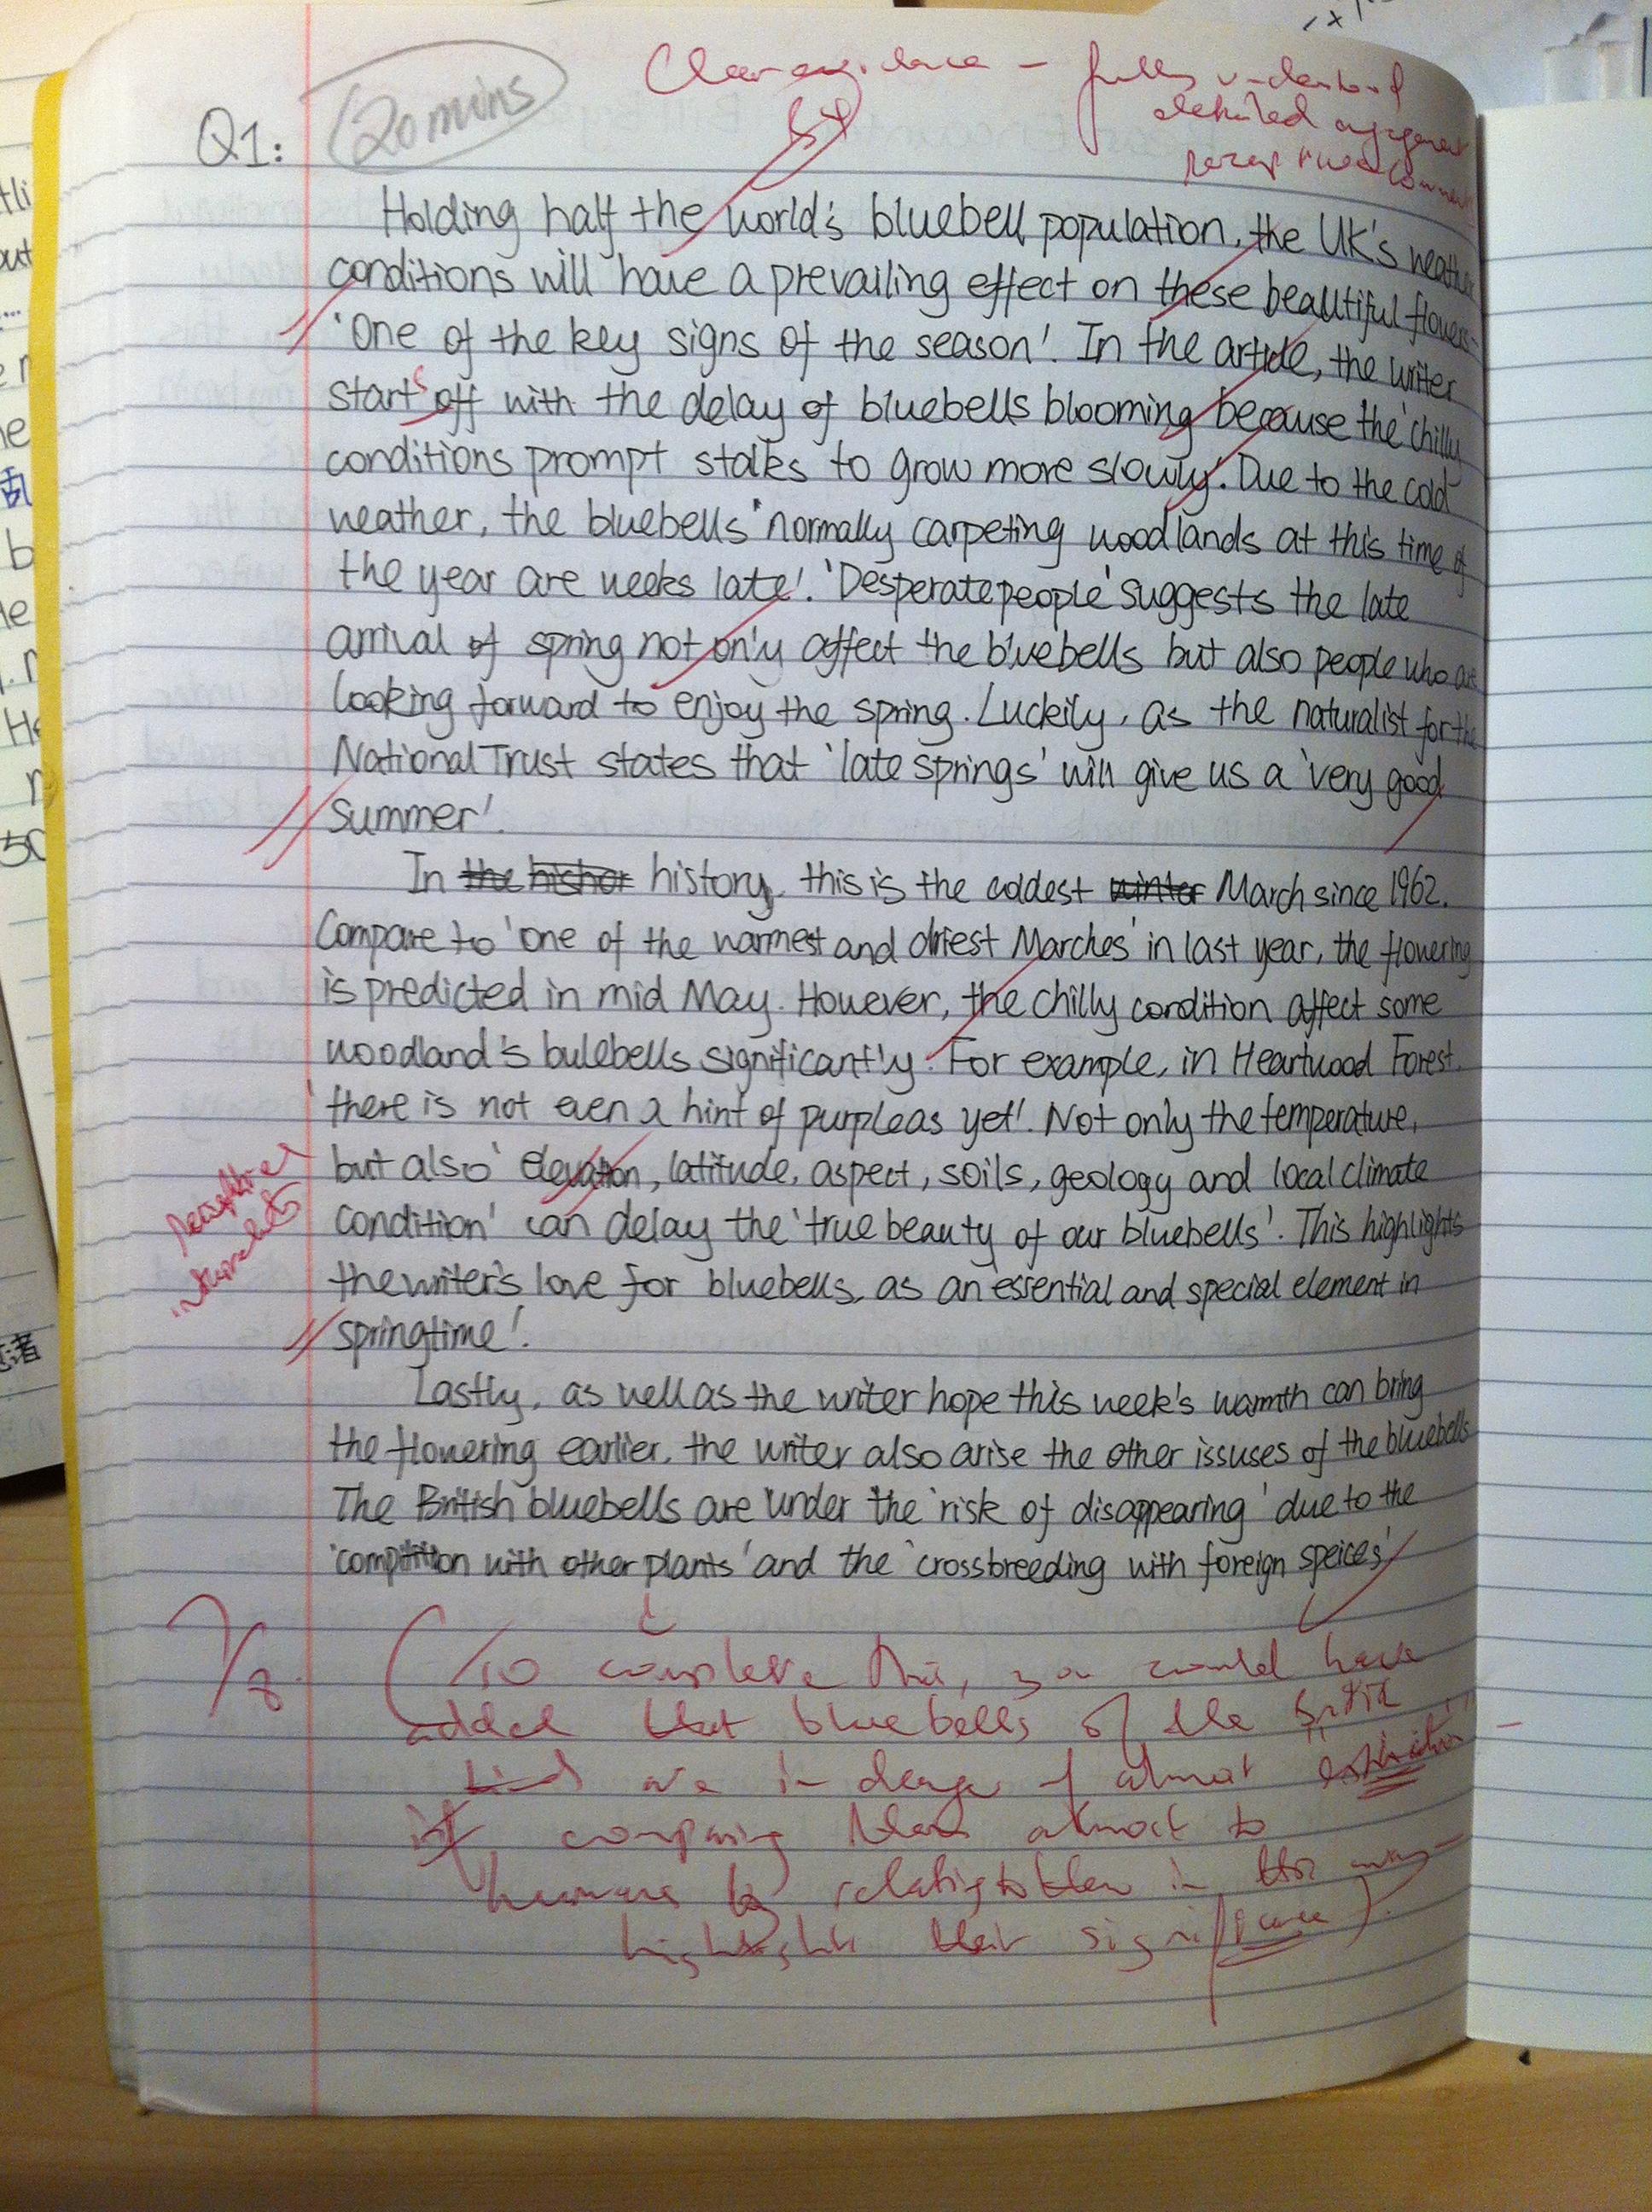 Q1:
20 mins
Clear evidence - fully understood
detailed engagement
perceptive comment
Holding half the world's bluebell population, the UK's weather
conditions will have a prevailing effect on these beautiful flowers-
'One of the key signs of the season'. In the article, the writer
starts off with the delay of bluebells blooming because the 'chilly
conditions prompt stalks to grow more slowly'. Due to the cold
weather, the bluebells 'normally carpeting woodlands at this time of
the year are weeks late'. 'Desperate people' suggests the late
arrival of spring not only affect the bluebells but also people who are
looking forward to enjoy the spring. Luckily, as the naturalist for the
National Trust states that 'late springs' will give us a 'very good
summer'.
In the hishor history, this is the coldest winter March since 1962.
Compare to 'one of the warmest and driest Marches' in last year, the flowering
is predicted in mid May. However, the chilly condition affect some
woodland's bulebells significantly. For example, in Heartwood Forest,
'there is not even a hint of purple as yet'. Not only the temperature,
but also 'elevation, latitude, aspect, soils, geology and local climate
condition' can delay the 'true beauty of our bluebells'. This highlights
the writer's love for bluebells, as an 'essential and special element in
springtime'.
perceptive
interpretation
Lastly, as well as the writer hope this week's warmth can bring
the flowering earlier, the writer also arise the other issuses of the bluebells
The British bluebells are under the 'risk of disappearing' due to the
'compitition with other plants' and the 'crossbreeding with foreign speices'
7/8
(To complete this, you could have
added that bluebells of the British
kind are in danger of almost "extinction" -
comparing them almost to
humans by relating to them in this way -
highlights their significance).